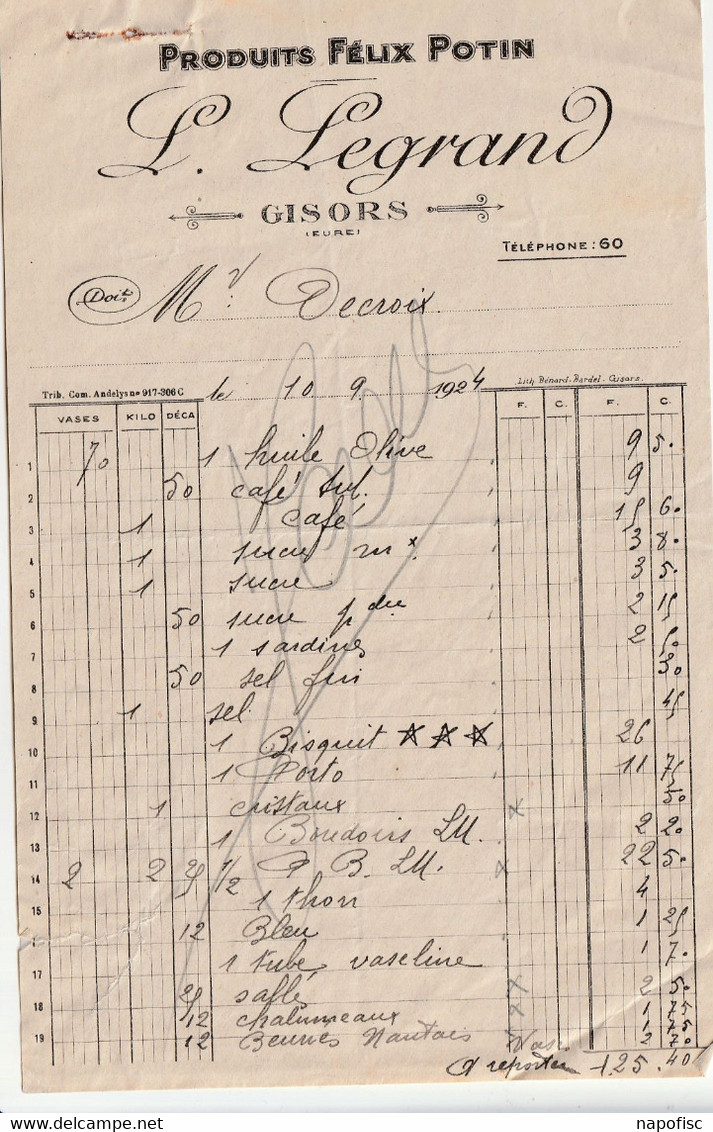 PRODUITS FÉLIX POTIN
L. Legrand
GISORS
(EURE)
TÉLÉPHONE : 60
Doit Mr Decroix
Trib. Com. Andelys nº 917-306 C le 10 9 1924 Lith. Bénard-Bardel - Gisors.
VASES KILO DÉCA F. C. F. C.
1 70 1 huile Olive 9 50
2 50 café 9
3 1 café 15 60
4 1 sucre mx 3 80
5 1 sucre 3 50
6 50 sucre pdre 2 15
7 1 sardines 2 50
8 50 sel fin 30
9 1 sel 45
10 1 Bisquit ☆☆☆ 26
1 Porto 11 75
12 1 cristaux x 50
13 1 Boudoirs LU. 2 20
14 2 2 25 1/2 P B. LU. x 22 50
15 1 thon 4
12 Bleu 1 25
17 1 tube vaseline 1 70
18 25 sablés x 2 50
12 chalumeaux x 1 75
19 12 Beurrés Nantais x 1 75
Vase 2 70
A reporter 125 40
napofisc